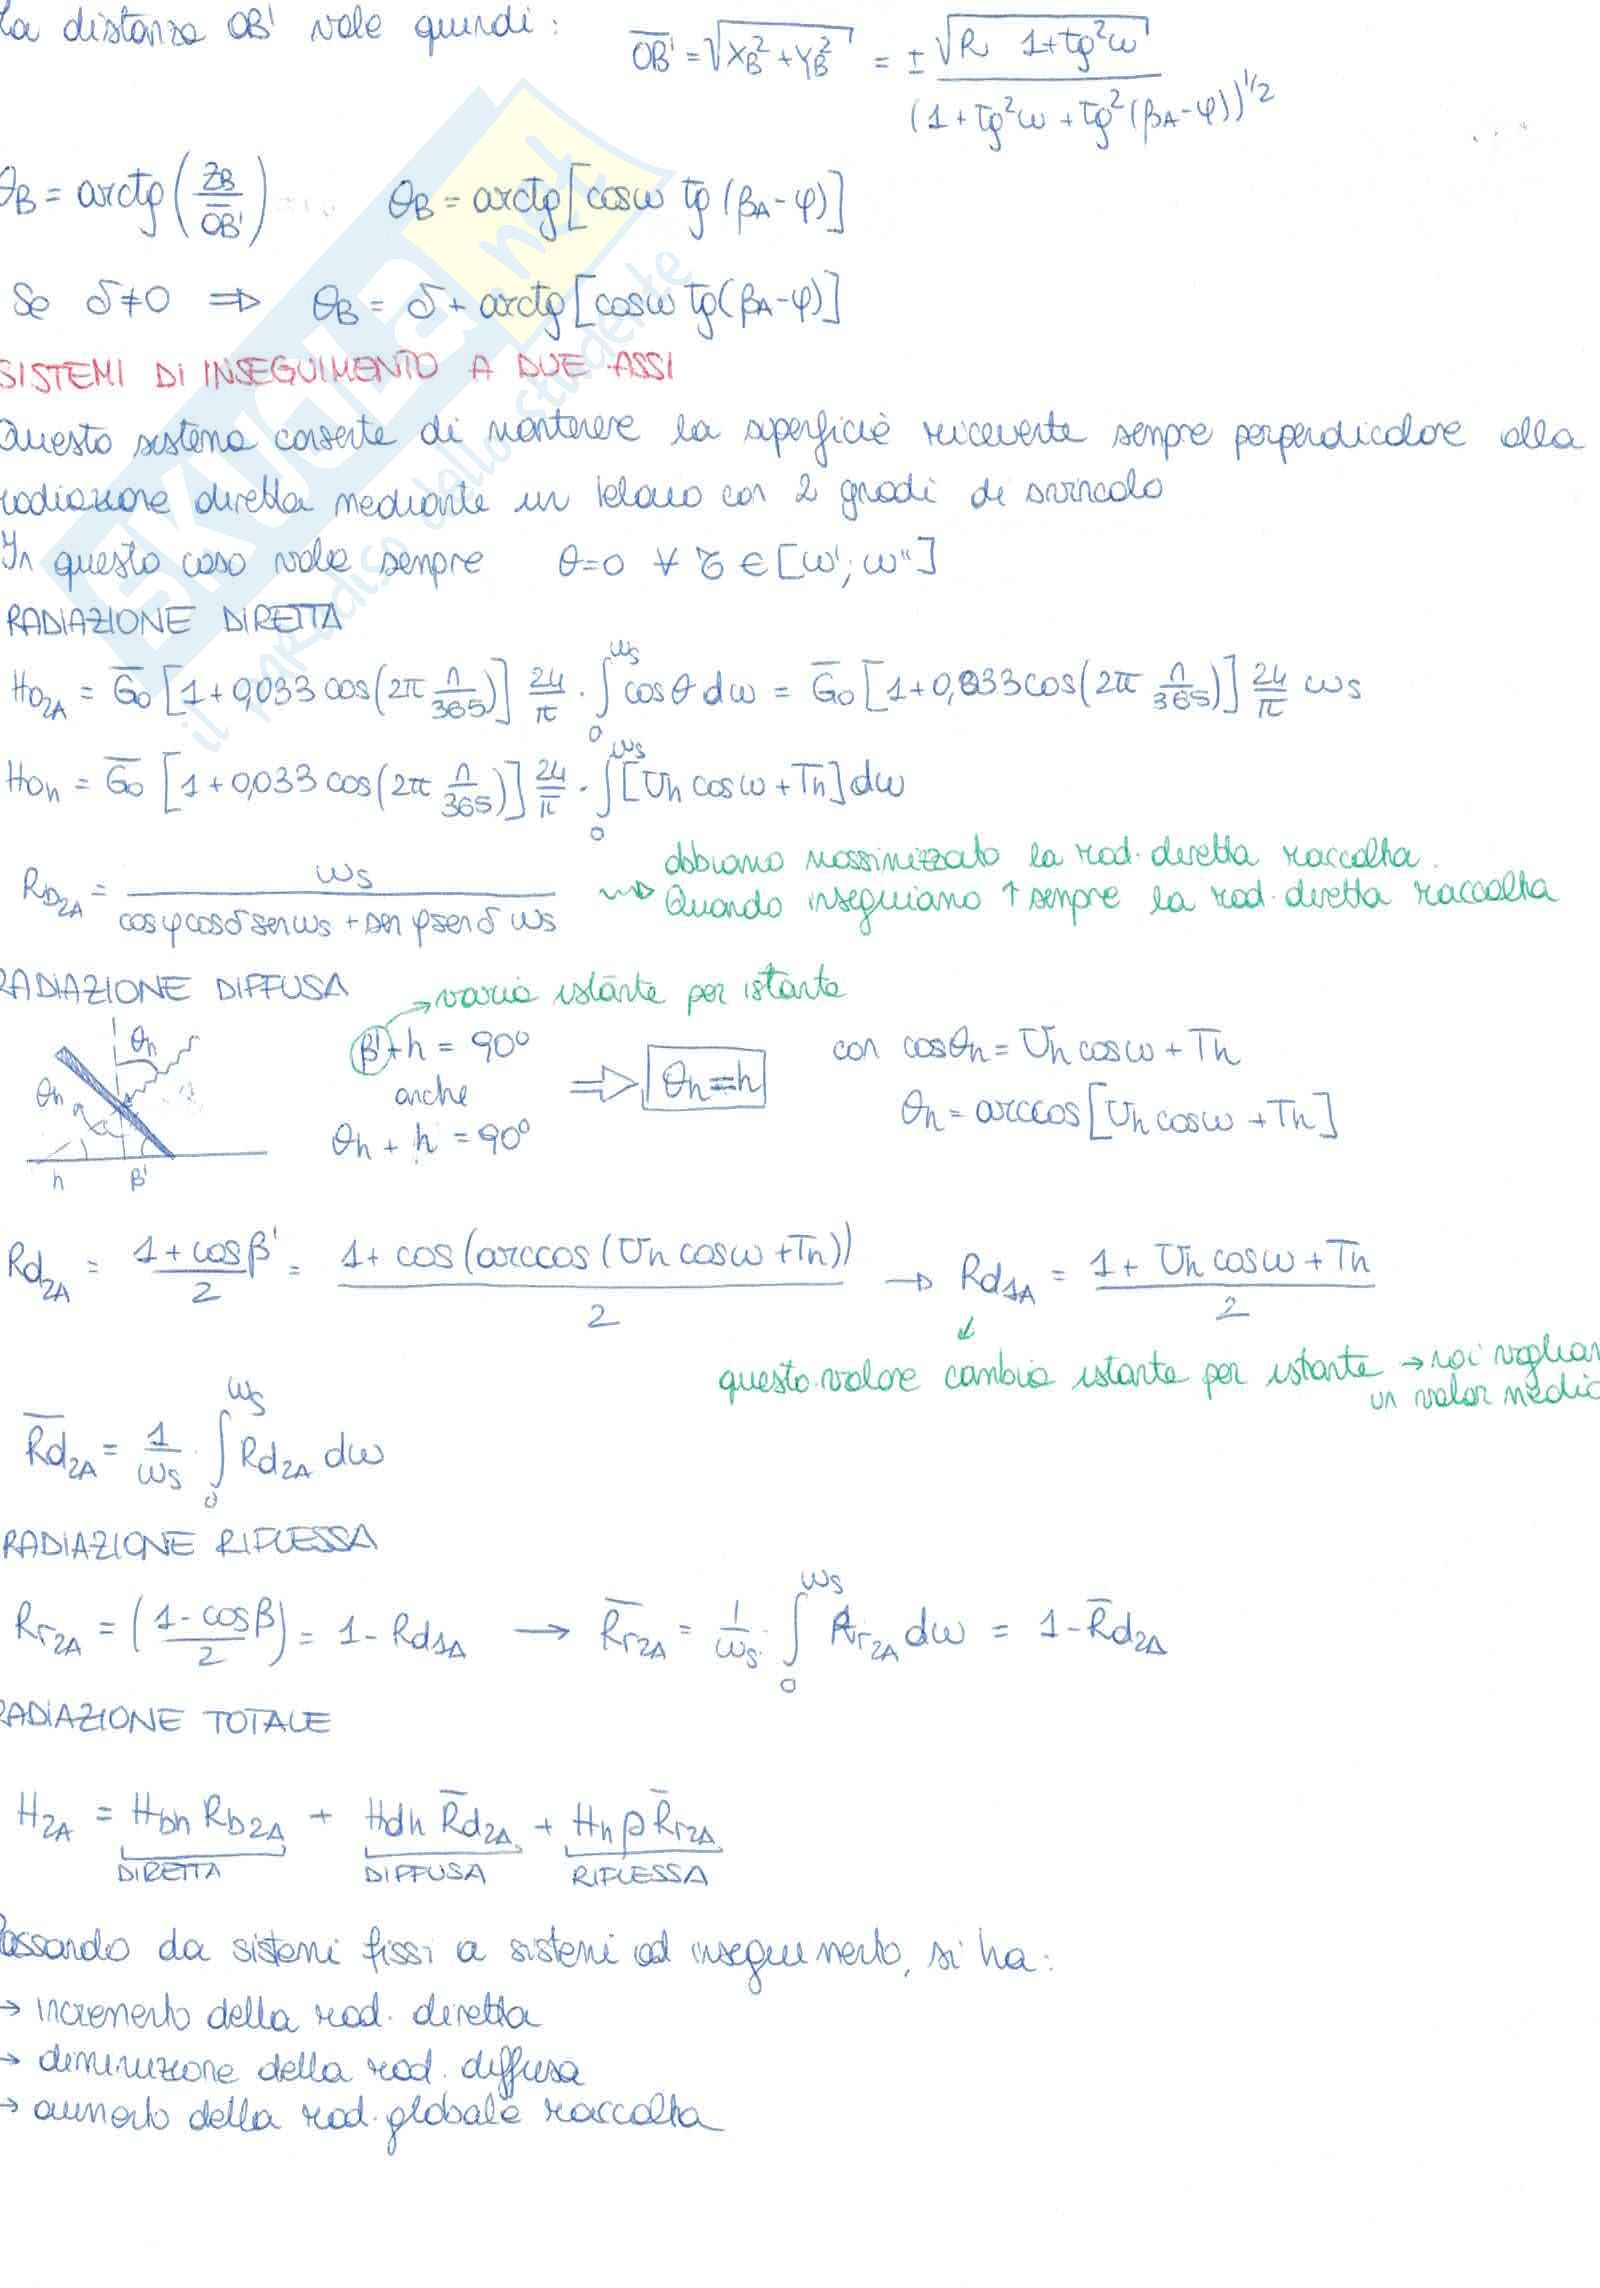 la distanza OB' vale quindi: OB' = √(XB² + YB²) = ± √R 1+tg²ω / (1+tg²ω+tg²(βA-φ))^1/2
θB = arctg(ZB/OB') θB = arctg[cosω tg(βA-φ)]
Se δ≠0 ⇒ θB = δ + arctg[cosω tg(βA-φ)]
SISTEMI DI INSEGUIMENTO A DUE ASSI
Questo sistema consente di mantenere la superficie ricevente sempre perpendicolare alla
radiazione diretta mediante un telaio con 2 gradi di svincolo
In questo caso vale sempre θ=0 ∀ τ ∈ [ω'; ω"]
RADIAZIONE DIRETTA
Ho2A = G̅o [1+0,033 cos(2π n/365)] 24/π · ∫₀^ωs cosθ dω = G̅o [1+0,033cos(2π n/365)] 24/π ωs
Hoh = G̅o [1+0,033 cos(2π n/365)] 24/π · ∫₀^ωs [Uh cosω + Th] dω
RD2A = ωs / cosφcosδsenωs + senφsenδ ωs
abbiamo massimizzato la rad. diretta raccolta.
Quando inseguiamo ↑ sempre la rad. diretta raccolta
RADIAZIONE DIFFUSA
→ varia istante per istante
β'+h = 90°
anche
θh + h = 90°
⇒ θh=h
con cosθh = Uh cosω + Th
θh = arccos[Uh cosω + Th]
θh
θh
h β'
Rd2A = 1+cosβ'/2 = 1+cos(arccos(Uh cosω+Th))/2 → Rd1A = 1+Uh cosω+Th/2
questo valore cambia istante per istante → noi vogliam
un valor medio
R̅d2A = 1/ωs · ∫₀^ωs Rd2A dω
RADIAZIONE RIFLESSA
Rr2A = (1-cosβ/2) = 1-Rd1A → R̅r2A = 1/ωs · ∫₀^ωs Rr2A dω = 1-R̅d2A
RADIAZIONE TOTALE
H2A = Hbh Rb2A + Hdh R̅d2A + Hh ρ R̅r2A
DIRETTA DIFFUSA RIFLESSA
Passando da sistemi fissi a sistemi ad inseguimento, si ha:
→ incremento della rad. diretta
→ diminuzione della rad. diffusa
→ aumento della rad. globale raccolta
SKUOLA.net
il paradiso dello studente